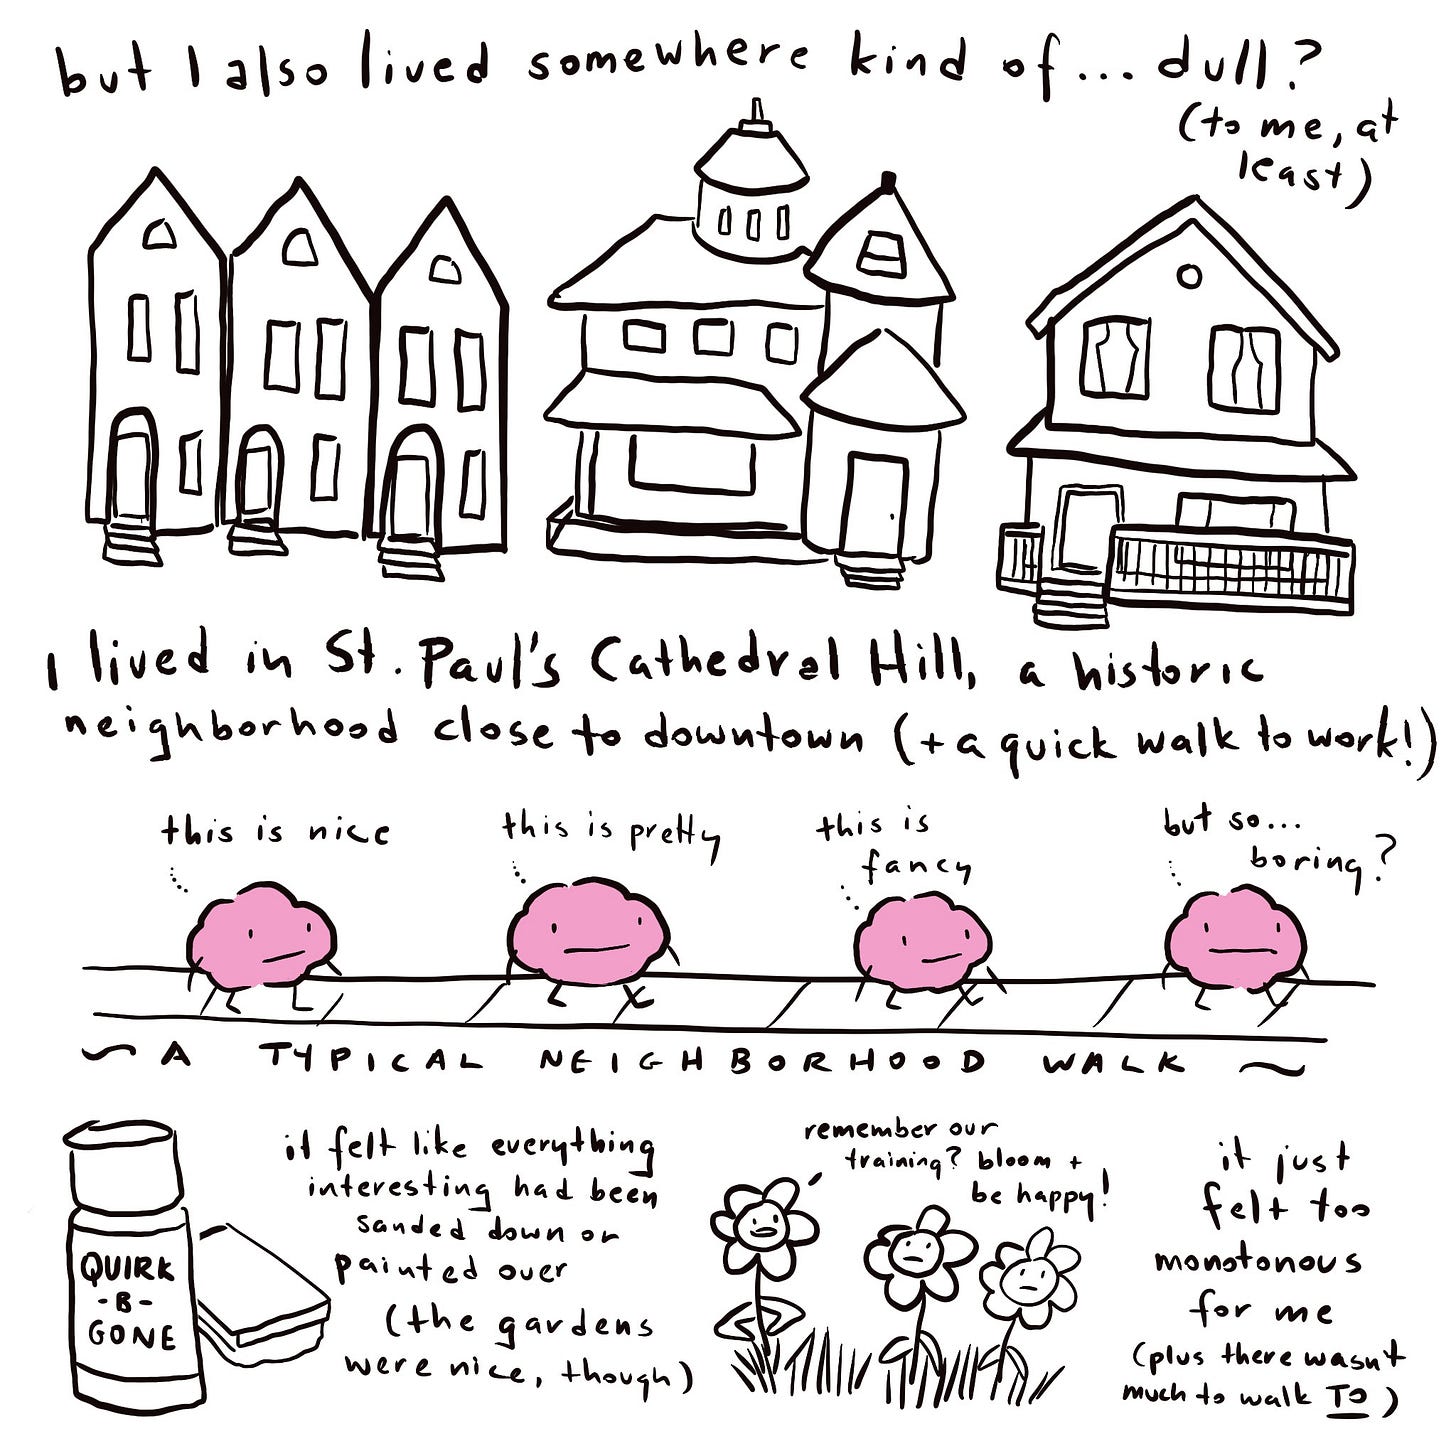 but I also lived somewhere kind of... dull?
(to me, at
least)
I lived in St. Paul's Cathedral Hill, a historic
neighborhood close to downtown (+ a quick walk to work!)
this is nice
this is pretty
this is
fancy
but so...
boring?
~ A TYPICAL NEIGHBORHOOD WALK ~
QUIRK
-B-
GONE
it felt like everything
interesting had been
sanded down or
painted over
(the gardens
were nice, though)
remember our
training? bloom +
be happy!
it just
felt too
monotonous
for me
(plus there wasn't
much to walk TO)